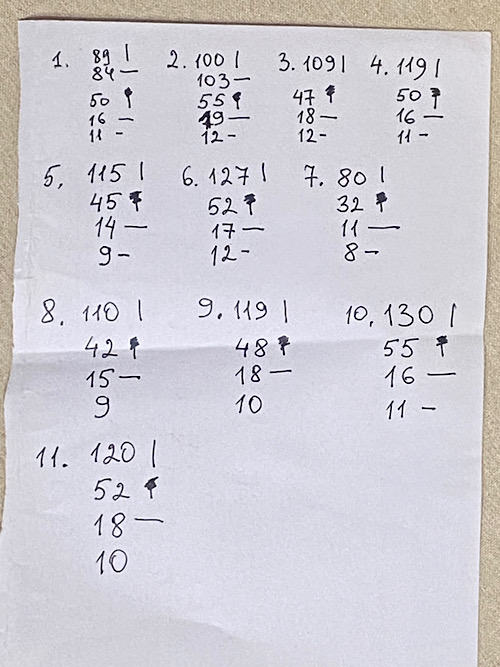 1. 89 | 2. 100 | 3. 109 | 4. 119 |
84 — 103 —
50 55 47 50
16 — 19 — 18 — 16 —
11 - 12 - 12 - 11 -
5, 115 | 6. 127 | 7. 80 |
45 52 32
14 — 17 — 11 —
9 - 12 - 8 -
8. 110 | 9. 119 | 10. 130 |
42 48 55
15 — 18 — 16 —
9 10 11 -
11. 120 |
52
18 —
10